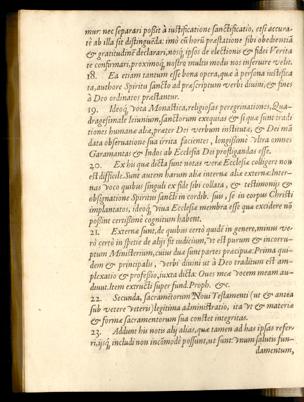 mur: nec separari possit à iustificatione sanctificatio, etsi accura-
tè ab illa sit distinguēda: imò os horū præstatione sibi obedientiā
& gratitudinē declarari, nosq́; ipsos de electionis & fidei Verita
te confirmari, proximoq́; nostro multu modu nos inseruire velit.
18. Ea etiam tantum esse bona opera, quæ à persona iustifica
ta, authore Spiritu sancto ad præscriptum verbi diuini, & fines
à Deo ordinatos præstantur.
19. Ideoq́; vota Monastica, religiosas peregrinationes, Qua-
dragesimale Ieiunium, sanctorum exequias & si quæ sunt tradi
tiones humanæ aliæ, præter Dei verbum institutæ, & Dei mā
data obseruatione sua irrita facientes, longissimè vltra omnes
Garamantas & Indos ab Ecclesia Dei profligandas esse.
20. Ex his quæ dicta sunt notas veræ Ecclesiæ colligere non
est difficile. Sunt autem harum aliæ internæ aliæ externæ. Inter-
nas voco quibus singuli ex fide sibi collata, & testimonijs &
obsignatione Spiritus sancti in cordib. suis, se in corpus Christi
implantatos, ideoq́; viua Ecclesiæ membra esse quæ excidere nō
possint certissimè cognitum habent.
21. Externæ sunt, de quibus certò quidē in genere, minus ve-
rò certò in specie de alijs fit iudicium, vt est purum & incorru-
ptum Ministerium, cuius duæ sunt partes præcipuæ: Prima qui-
dem & principalis, verbi diuini vt à Deo traditum est am-
plexatio & professio, iuxta dicta: Oues meæ vocem meam au-
diunt. Item extructi super fund. Proph. &c.
22. Secunda, sacramētorum Noui Testamenti (vt & antea
sub vetere veteris) legitima administratio, ita vt & materia
& formæ sacramentorum sua constet integritas.
23. Addunt his notis alij alias, quæ tamen ad has ipsas refer-
ri, ijsq́; includi non incōmodè possunt, vt sunt vnum salutis fun-
damentum,